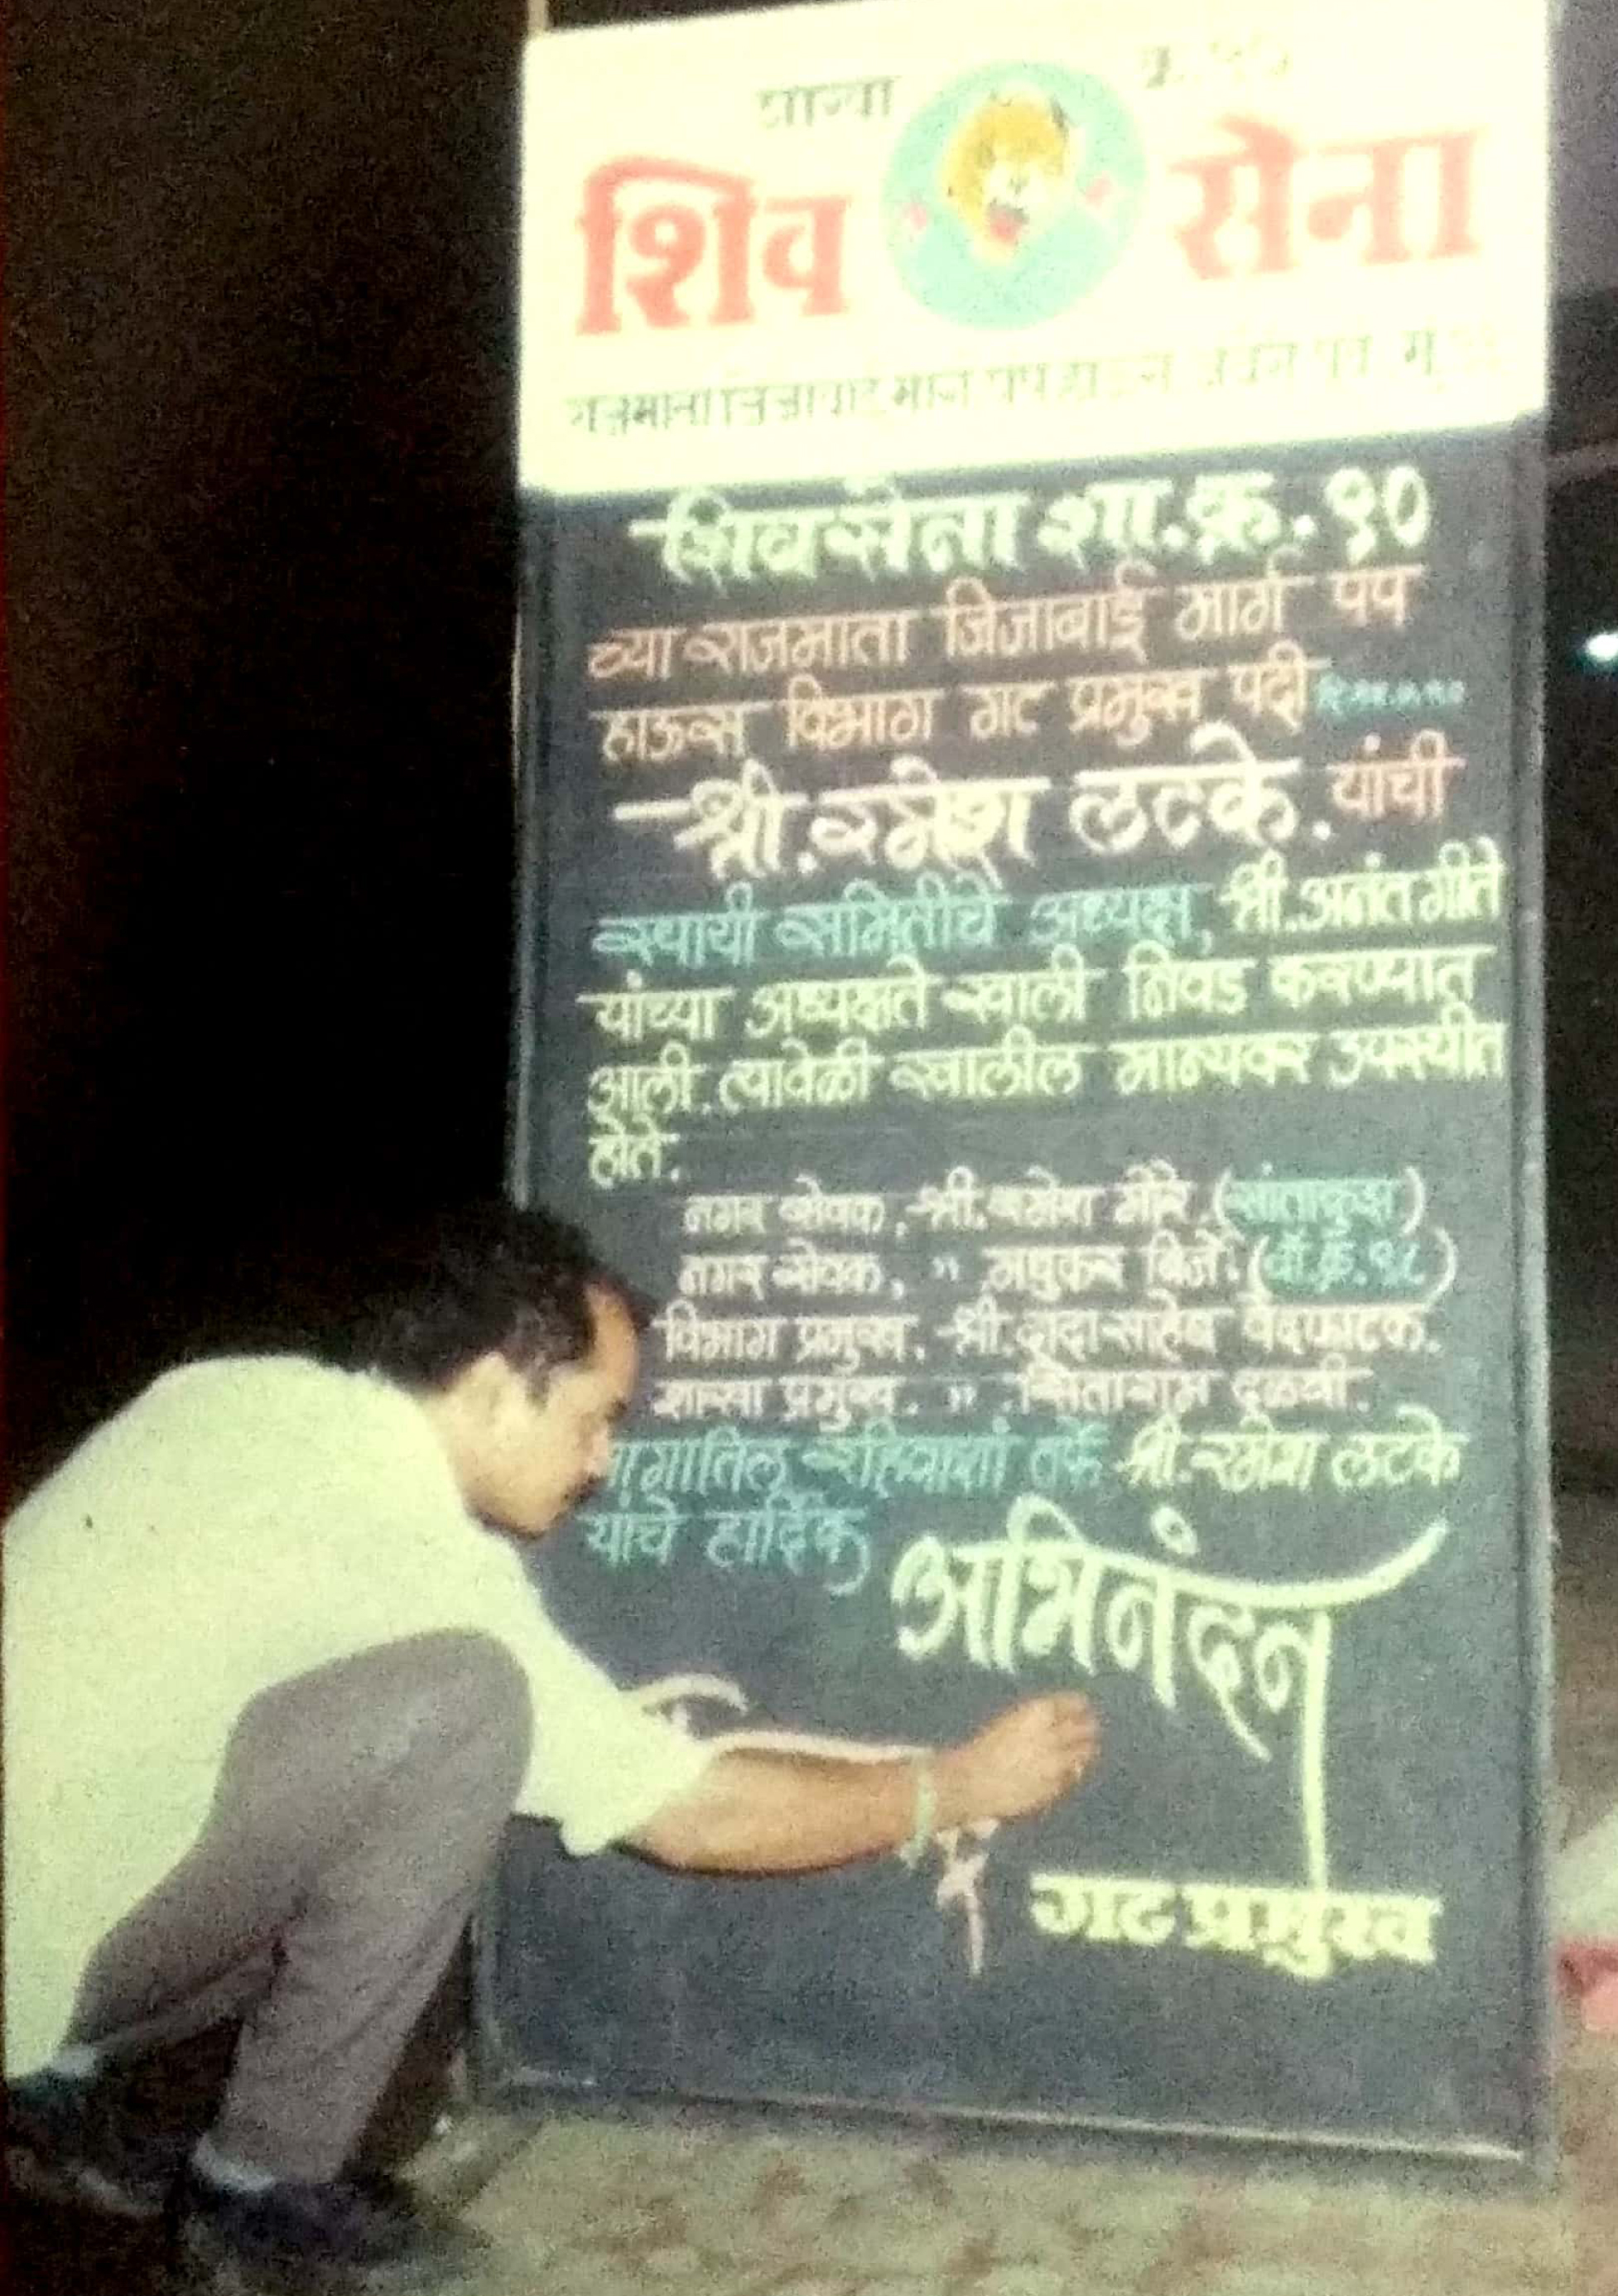 शाखा क्र. ९०
शिव सेना
राजमाता जिजाबाई मार्ग पंप हाऊस
शिवसेना शा.क्र. ९०
च्या राजमाता जिजाबाई मार्ग पंप
हाऊस विभाग गट प्रमुख पदी
श्री. रमेश लटके. यांची
स्थायी समितीचे अध्यक्ष, श्री. अनंत गीते
यांच्या अध्यक्षते खाली निवड करण्यात
आली. त्यावेळी खालील मान्यवर उपस्थीत
होते.
नगर सेवक, श्री. रमेश मोरे. (सांताक्रुझ)
नगर सेवक, " मधुकर बिर्जे. (वॉ.क्र. ९८)
विभाग प्रमुख, श्री. दादासाहेब वेदफाटक.
शाखा प्रमुख. " सिताराम दळवी.
रहिवाशां तर्फे श्री. रमेश लटके
यांचे हार्दिक
अभिनंदन
गट प्रमुख